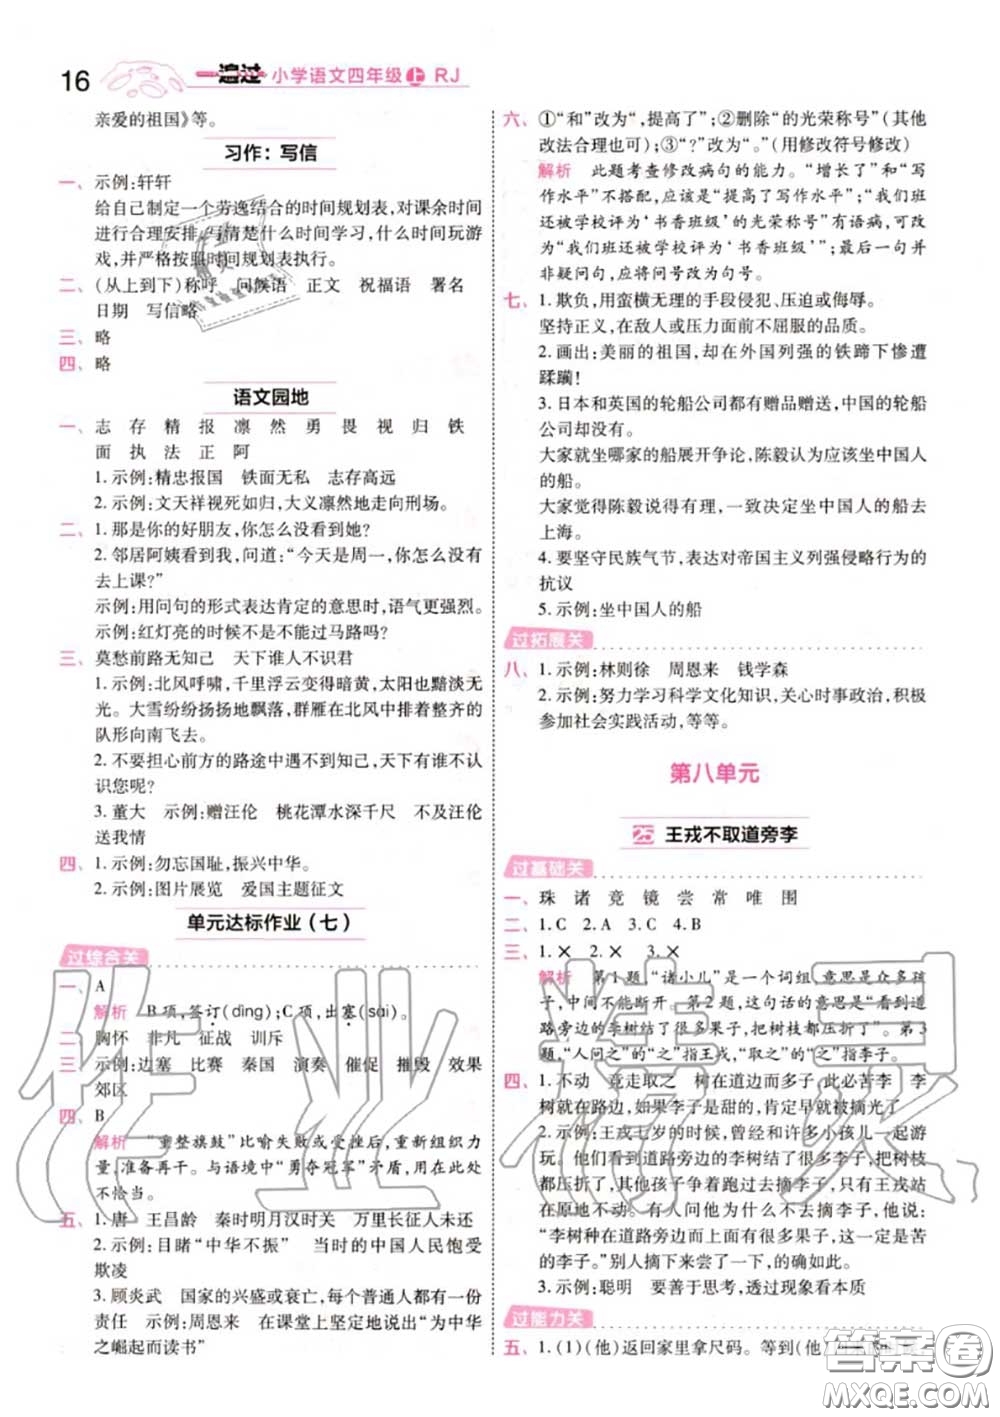 16 一遍过 小学语文四年级上 RJ
亲爱的祖国》等。
习作：写信
一、示例:轩轩
给自己制定一个劳逸结合的时间规划表,对课余时间
进行合理安排,写清楚什么时间学习,什么时间玩游
戏,并严格按照时间规划表执行。
二、(从上到下)称呼 问候语 正文 祝福语 署名
日期 写信略
三、略
四、略
语文园地
一、志 存 精 报 凛 然 勇 畏 视 归 铁
面 执 法 正 阿
1.示例:精忠报国 铁面无私 志存高远
2.示例:文天祥视死如归,大义凛然地走向刑场。
二、1.那是你的好朋友,你怎么没看到她?
2.邻居阿姨看到我,问道:“今天是周一,你怎么没有
去上课?”
示例:用问句的形式表达肯定的意思时,语气更强烈。
示例:红灯亮的时候不是不能过马路吗?
三、莫愁前路无知己 天下谁人不识君
1.示例:北风呼啸,千里浮云变得暗黄,太阳也黯淡无
光。大雪纷纷扬扬地飘落,群雁在北风中排着整齐的
队形向南飞去。
2.不要担心前方的路途中遇不到知己,天下谁不认
识您呢?
3.董大 示例:赠汪伦 桃花潭水深千尺 不及汪伦
送我情
四、1.示例:勿忘国耻,振兴中华。
2.示例:图片展览 爱国主题征文
单元达标作业（七）
过综合关
一、A
解析 B项,签订(dìng);C项,出塞(sài)。
二、胸怀 非凡 征战 训斥
三、示例:边塞 比赛 秦国 演奏 催促 摧毁 效果
郊区
四、B
解析 “重整旗鼓”比喻失败或受挫后,重新组织力
量,准备再干。与语境中“勇夺冠军”矛盾,用在此处
不恰当。
五、1.唐 王昌龄 秦时明月汉时关 万里长征人未还
2.示例:目睹“中华不振” 当时的中国人民饱受
欺凌
3.顾炎武 国家的兴盛或衰亡,每个普通人都有一份
责任 示例:周恩来 在课堂上坚定地说出“为中华
之崛起而读书”
六、①“和”改为“,提高了”;②删除“的光荣称号”(其他
改法合理也可);③“?”改为“。”(用修改符号修改)
解析 此题考查修改病句的能力。“增长了”和“写
作水平”不搭配,应该是“提高了写作水平”;“我们班
还被学校评为‘书香班级’的光荣称号”有语病,可改
为“我们班还被学校评为‘书香班级’”;最后一句并
非疑问句,应将问号改为句号。
七、1.欺负,用蛮横无理的手段侵犯、压迫或侮辱。
坚持正义,在敌人或压力面前不屈服的品质。
2.画出:美丽的祖国,却在外国列强的铁蹄下惨遭
蹂躏!
3.日本和英国的轮船公司都有赠品赠送,中国的轮船
公司却没有。
大家就坐哪家的船展开争论,陈毅认为应该坐中国人
的船。
大家觉得陈毅说得有理,一致决定坐中国人的船去
上海。
4.要坚守民族气节,表达对帝国主义列强侵略行为的
抗议
5.示例:坐中国人的船
过拓展关
八、1.示例:林则徐 周恩来 钱学森
2.示例:努力学习科学文化知识,关心时事政治,积极
参加社会实践活动,等等。
第八单元
25 王戎不取道旁李
过基础关
一、珠 诸 竞 镜 尝 常 唯 围
二、1.C 2.A 3.C
三、1.× 2.× 3.×
解析 第1题,“诸小儿”是一个词组,意思是众多孩
子,中间不能断开。第2题,这句话的意思是“看到道
路旁边的李树结了很多果子,把树枝都压折了”。第3
题,“人问之”的“之”指王戎,“取之”的“之”指李子。
四、1.不动 竞走取之 树在道边而多子,此必苦李 李
树就在路边,如果李子是甜的,肯定早就被摘光了
2.示例:王戎七岁的时候,曾经和许多小孩儿一起游
玩。他们看到道路旁边的李树结了很多果子,把树枝
都压折了。其他孩子都跑去摘李子,只有王戎站
在原地不动。有人问他为什么不去摘李子,他说:
“李树种在道路旁边而且还有很多果子,这一定是苦
的李子。”别人摘下来尝了一下,的确如此。
3.示例:聪明 要善于思考,透过现象看本质
过能力关
五、1.(1)(他)返回家里拿尺码。等到(他)
作业精灵
答案圈
MXQE.COM